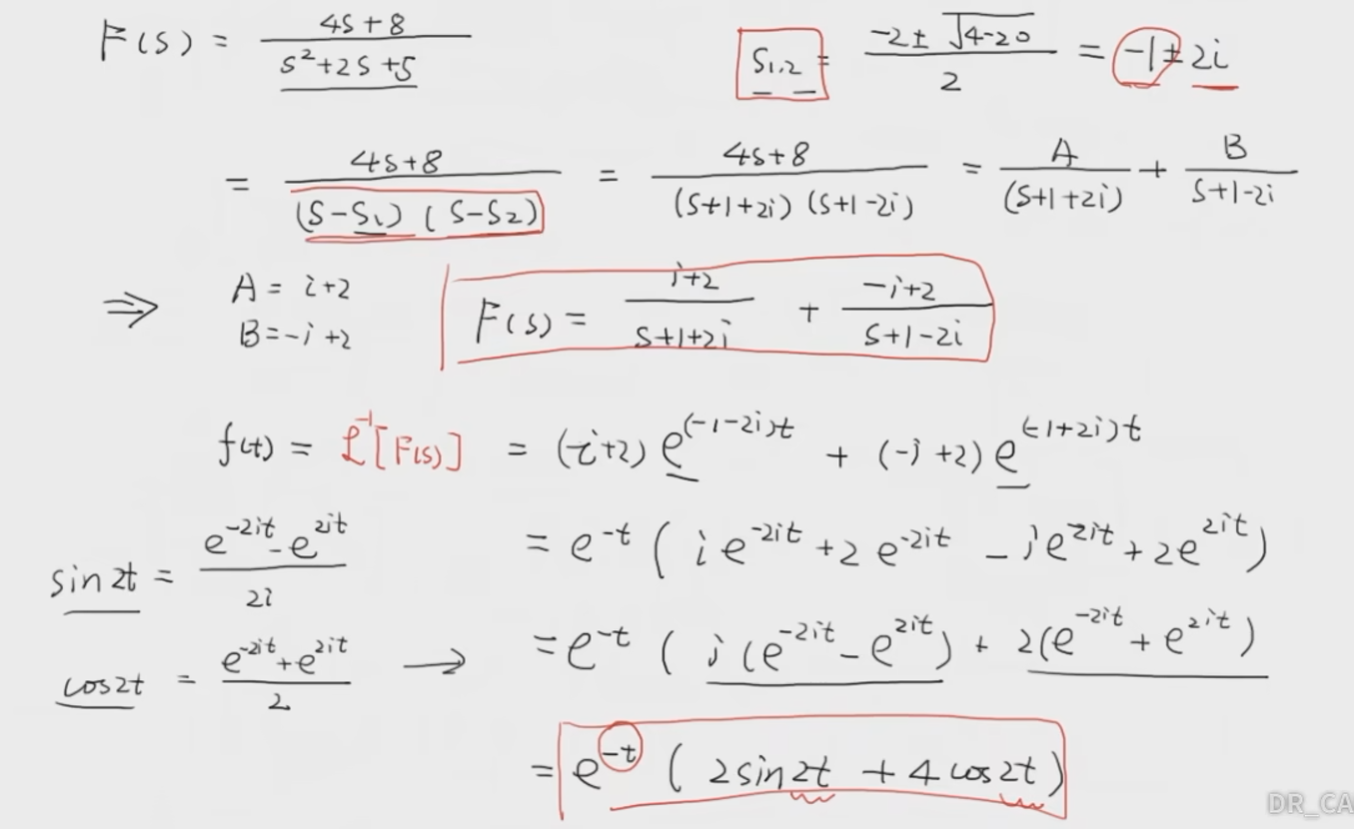 F(s) = (4s+8)/(s²+2s+5)    s₁,₂ = (-2±√(4-20))/2 = -1±2i
= (4s+8)/((s-s₁)(s-s₂)) = (4s+8)/((s+1+2i)(s+1-2i)) = A/(s+1+2i) + B/(s+1-2i)
⇒ A = i+2
B = -i+2
F(s) = (i+2)/(s+1+2i) + (-i+2)/(s+1-2i)
f(t) = ℒ⁻¹[F(s)] = (i+2)e^((-1-2i)t) + (-i+2)e^((-1+2i)t)
sin2t = (e^(-2it) - e^(2it))/2i
= e^(-t)(ie^(-2it) + 2e^(-2it) - ie^(2it) + 2e^(2it))
cos2t = (e^(-2it) + e^(2it))/2
→ = e^(-t)(i(e^(-2it) - e^(2it)) + 2(e^(-2it) + e^(2it))
= e^(-t)(2sin2t + 4cos2t)
DR_CA